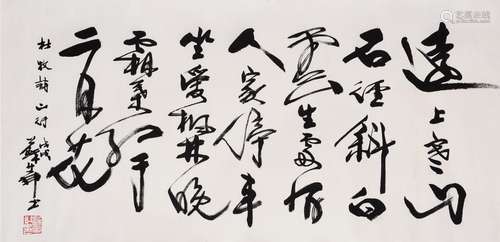 遠上寒山
石徑斜白
雲生處有
人家停車
坐愛楓林晚
霜葉紅于
二月花
杜牧詩山行